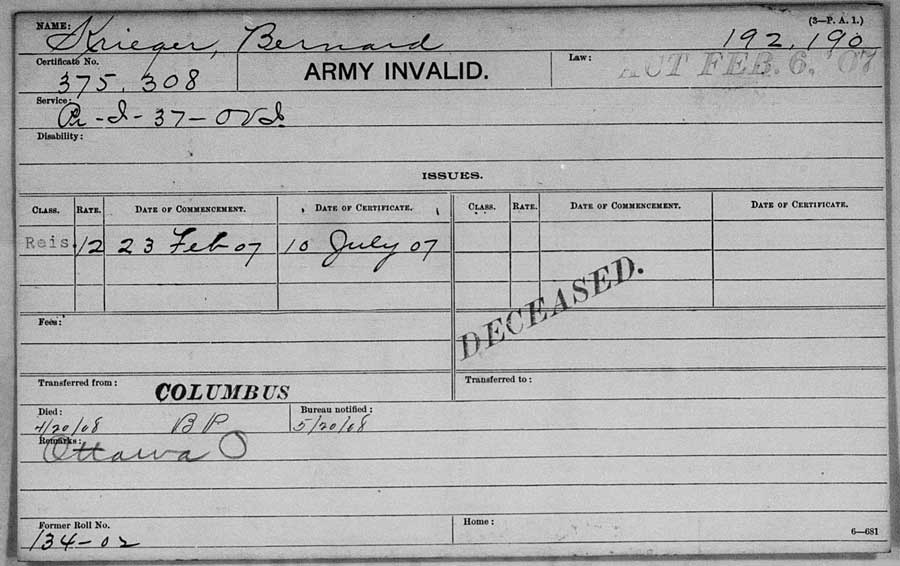 (3—P. A. 1.)
NAME: Krieger, Bernard 192,190
Certificate No. 375,308 ARMY INVALID. Law: ACT FEB. 6, '07
Service: -I-37-
Disability:
ISSUES.
CLASS. RATE. DATE OF COMMENCEMENT. DATE OF CERTIFICATE. CLASS. RATE. DATE OF COMMENCEMENT. DATE OF CERTIFICATE.
Reis. 12 23 Feb 07 10 July 07
DECEASED.
Fees:
Transferred from: COLUMBUS Transferred to:
Died: 4/20/08 B P Bureau notified: 5/20/08
Remarks: Ottawa O
Former Roll No. 134-02 Home: 6—681